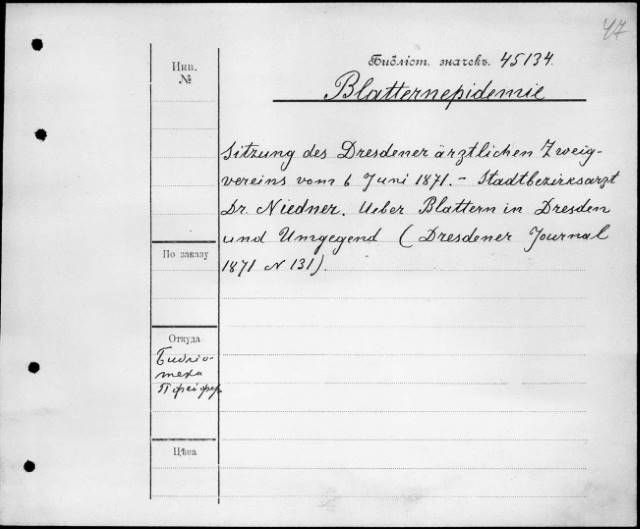 47
Инв.
№
Библіот. значекъ. 45134.
Blatternepidemie
Sitzung des Dresdener ärztlichen Zweig-
vereins vom 6 Juni 1871. – Stadtbezirksarzt
Dr. Niedner. Ueber Blattern in Dresden
und Umgegend (Dresdener Journal
1871 N 131).
По заказу
Откуда
Библіо-
тека
Пфейфер
Цѣна